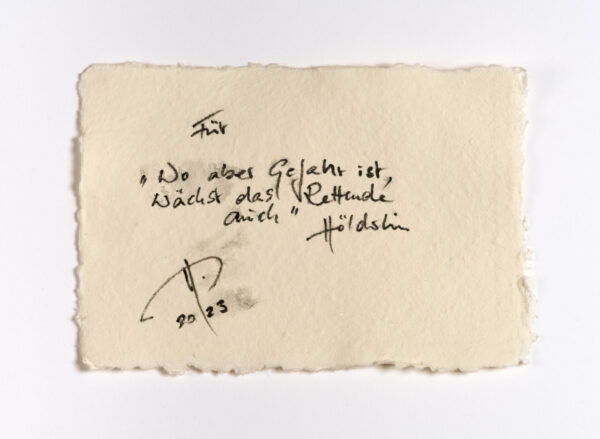 Für
„Wo aber Gefahr ist,
wächst das Rettende
auch"
Hölderlin
20 23